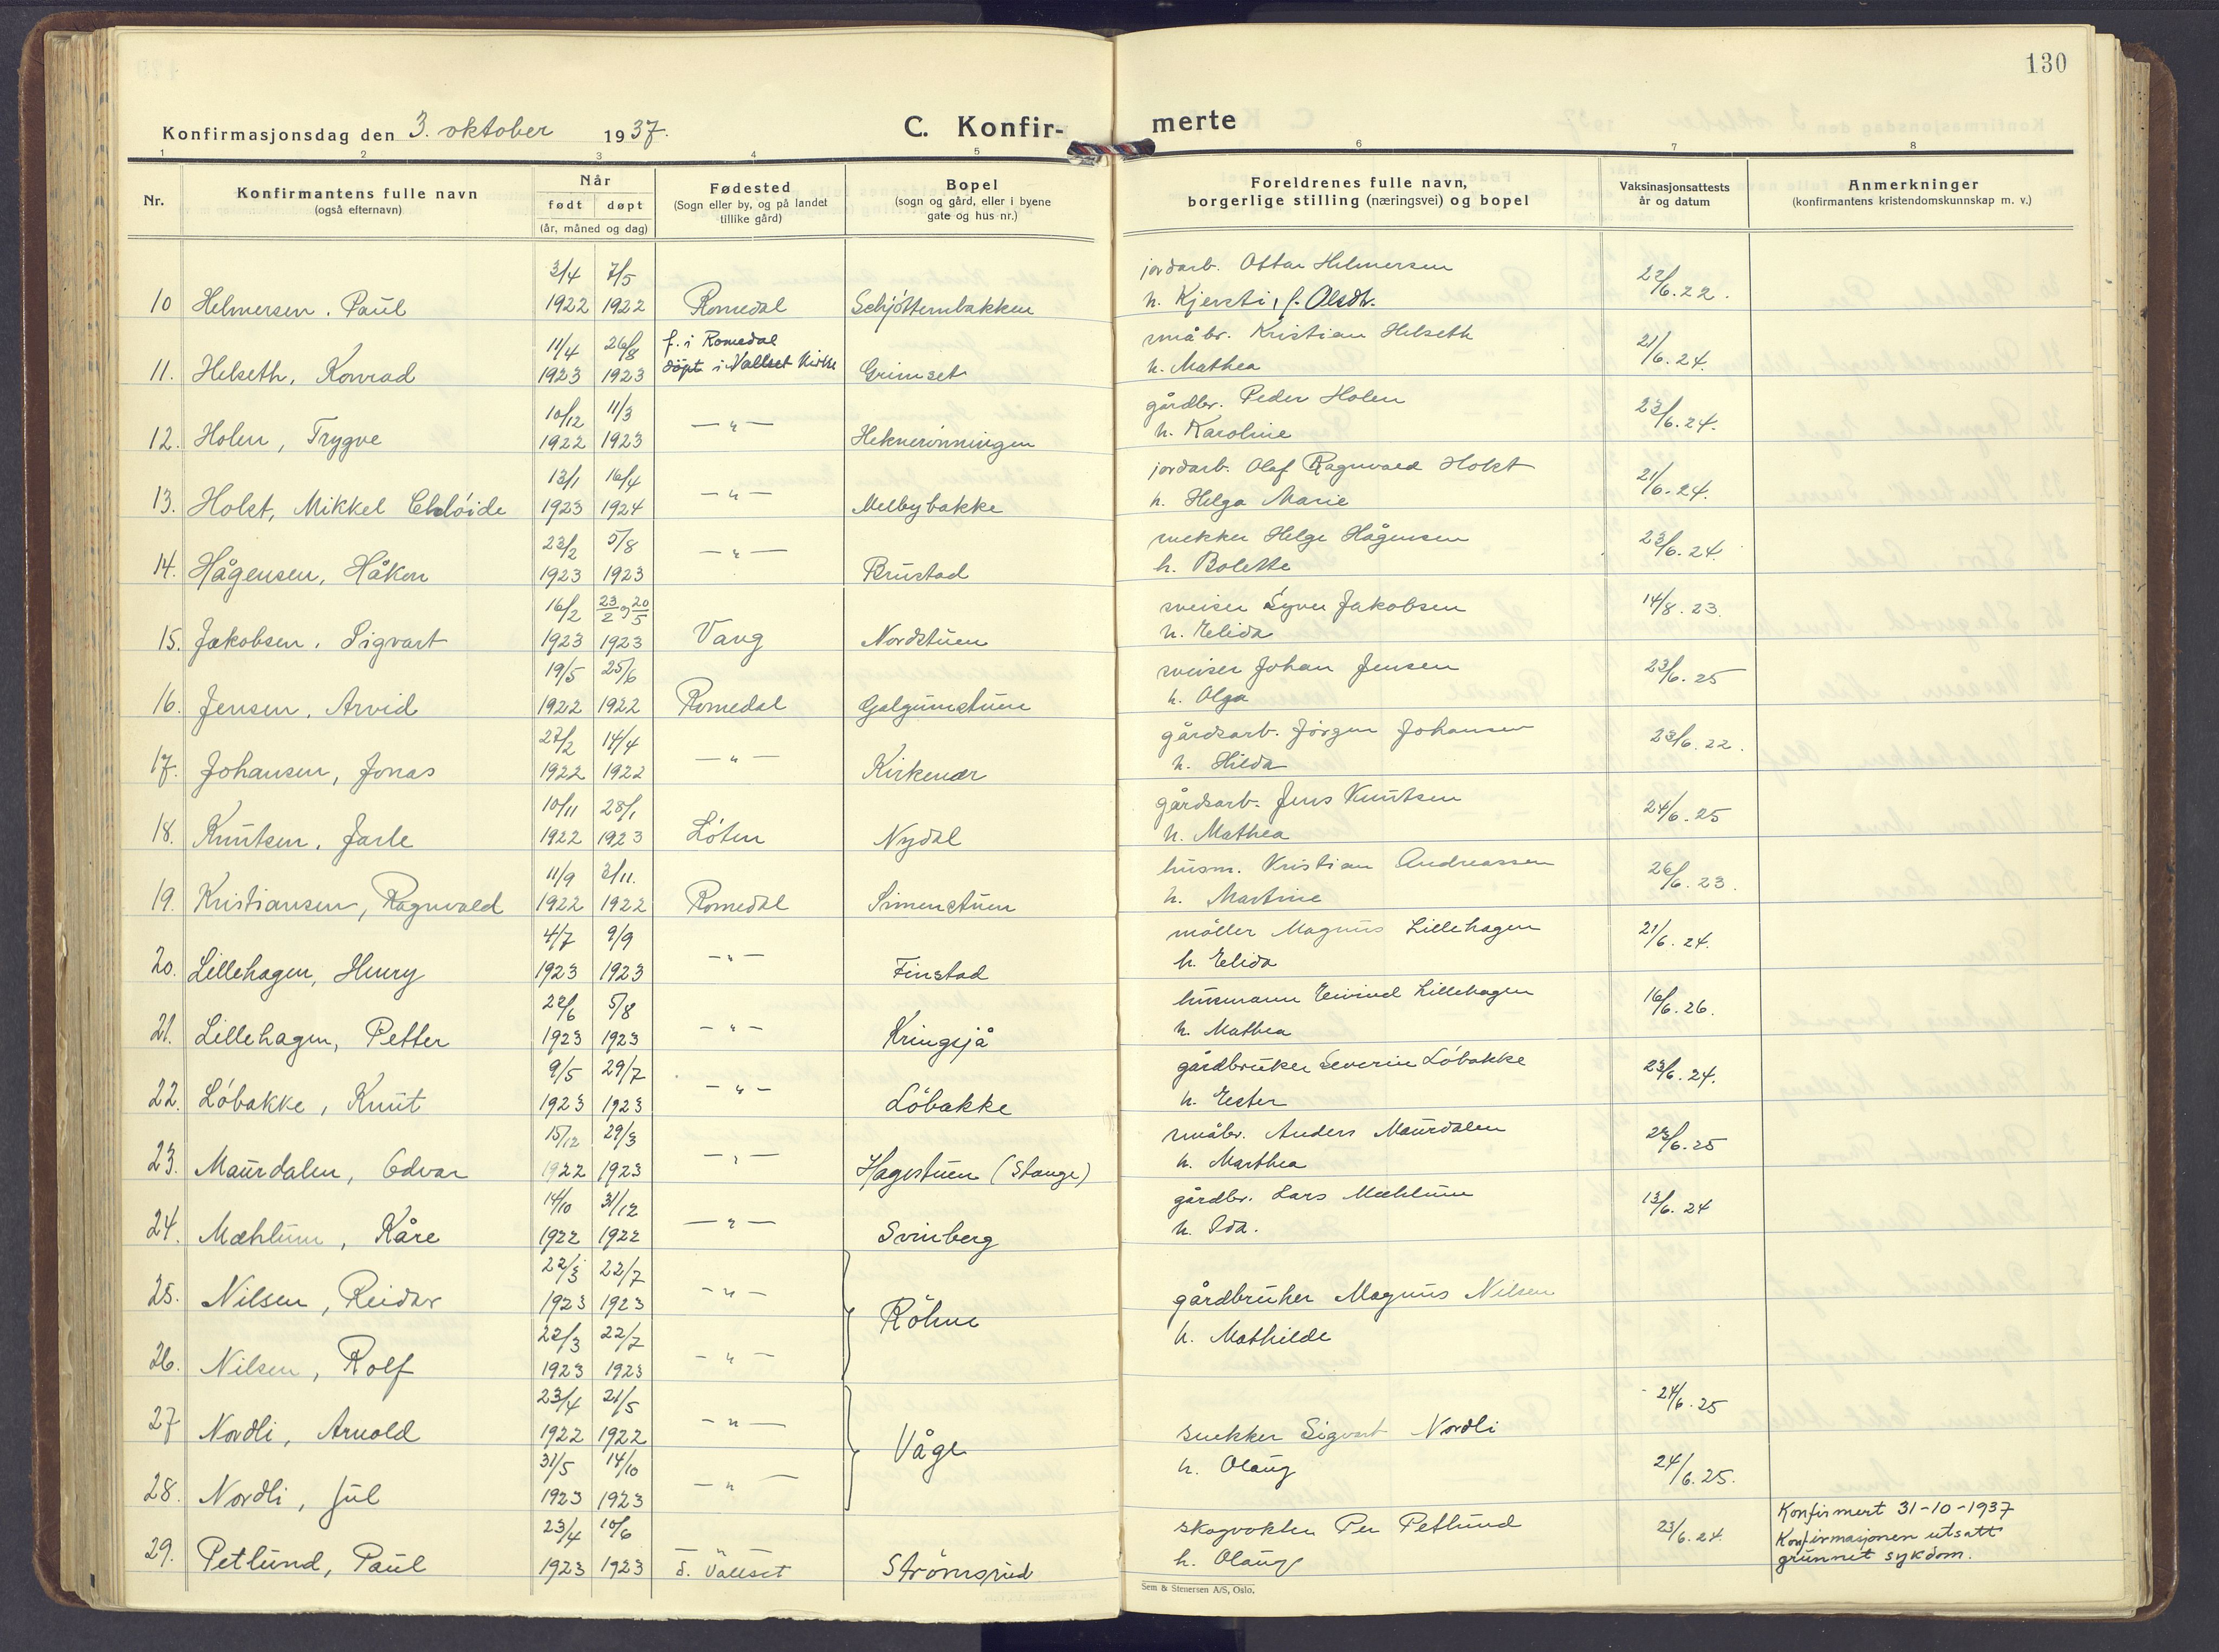 130
Konfirmasjonsdag den 3. oktober 1937.
C. Konfir-
merte
1 2 3 4 5 6 7 8
Nr.
Konfirmantens fulle navn
(også efternavn)
Når
født døpt
(år, måned og dag)
Fødested
(Sogn eller by, og på landet
tillike gård)
Bopel
(sogn og gård, eller i byene
gate og hus nr.)
Foreldrenes fulle navn,
borgerlige stilling (næringsvei) og bopel
Vaksinasjonsattests
år og datum
Anmerkninger
(konfirmantens kristendomskunnskap m. v.)
3/4 7/5 jordarb. Ottar Helmersen
10 Helmersen, Paul 1922 1922 Romedal Schjöttembakken h. Kjersti, f. Olsdtr. 22/6.22.
11/4 26/8 f. i Romedal småbr. Kristian Helseth
11. Helseth, Konrad 1923 1923 döpt i Vallset Kirke Grimset h. Mathea 21/6.24.
10/12 11/3 gårdbr. Peder Holen
12. Holen, Trygve 1922 1923 -"- Heknerönningen h. Karoline 23/6.24.
13/1 16/4 jordarb. Olaf Ragnvald Holst
13. Holst, Mikkel 1923 1924 -"- Melbybakke h. Helga Marie 21/6.24.
23/2 5/8 snekker Helge Hågensen
14. Hågensen, Håkon 1923 1923 -"- Brustad h. Bolette 23/6.24.
16/2 23/2 og 20/5 sveiser Syver Jakobsen
15. Jakobsen, Sigvart 1923 1923 Vang Nordstuen h. Elida 14/8.23.
19/5 25/6 sveiser Johan Jensen
16. Jensen, Arvid 1922 1922 Romedal Galgumstuen h. Olga 23/6.25
27/2 14/4 gårdsarb. Jörgen Johansen
17. Johansen, Jonas 1922 1922 -"- Kirkenær h. Hilda 23/6.22.
10/11 28/1 gårdsarb. Jens Knutsen
18. Knutsen, Jarle 1922 1923 Löten Nydal h. Mathea 24/6.25
11/9 3/11. husm. Kristian Andreassen
19. Kristiansen, Ragnvald 1922 1922 Romedal Simenstuen h. Martine 26/6.23.
4/7 9/9 möller Magnus Lillehagen
20. Lillehagen, Henry 1923 1923 -"- Finstad h. Elida 21/6.24.
22/6 5/8 husmann Eivind Lillehagen
21. Lillehagen, Petter 1923 1923 -"- Kringsjå h. Mathea 16/6.26.
9/5 29/7 gårdbruker Severin Löbakke
22. Löbakke, Knut 1923 1923 -"- Löbakke h. Ester 23/6.24.
15/12 29/3 småbr. Anders Maurdalen
23. Maurdalen, Odvar 1922 1923 -"- Hagestuen (Stange) h. Marthea 23/6.25
14/10 31/12 gårdbr. Lars Mæhlum
24. Mæhlum, Kåre 1922 1922 -"- Svinberg h. Ida. 13/6.24
22/3 22/7
25. Nilsen, Reidar 1923 1923 -"- Röhne gårdbruker Magnus Nilsen
22/3 22/7 h. Mathilde
26. Nilsen, Rolf 1923 1923 -"-
23/4 21/5 24/6.25
27 Nordli, Arnold 1922 1922 -"- Våge snekker Sigvart Nordli
31/5 14/10 h. Olaug 24/6.25.
28. Nordli, Jul 1923 1923 -"-
23/4 10/6 -"- skogvokter Per Petlund 23/6.24. Konfirmert 31-10-1937
Konfirmasjonen utsatt
29. Petlund, Paul 1923 1923 d. Vallset Strömsrud h. Olaug grunnet sykdom.
Sem & Stenersen A/S, Oslo.